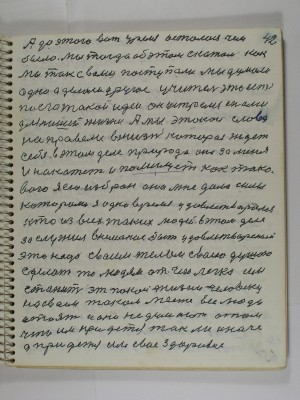 42
А до этого вот время осталось чем
было. Мы тогда об этом сказали как
мы так с вами поступали мы думали
одно а делали другое учител это есть
после такой идеи он встрелся с нами
для жизни А мы этой слов
направели в жизнь которая ждет
себя. в этом деле природа она за меня
и накажет и помилует как тако-
вого я ею избран она мне дала силы
которыми я одно время удовлетворялся
кто из всех таких людей в этом деле
заслужил внимание быть удовлетворенной
это надо своим телом свою душою
сделать то людям от чего легко им
станить эт такой жизни человеку
на своем таком месте все люди
стоят и они не думают о том
что им придется так ли иначе
а придется им свое здоровье